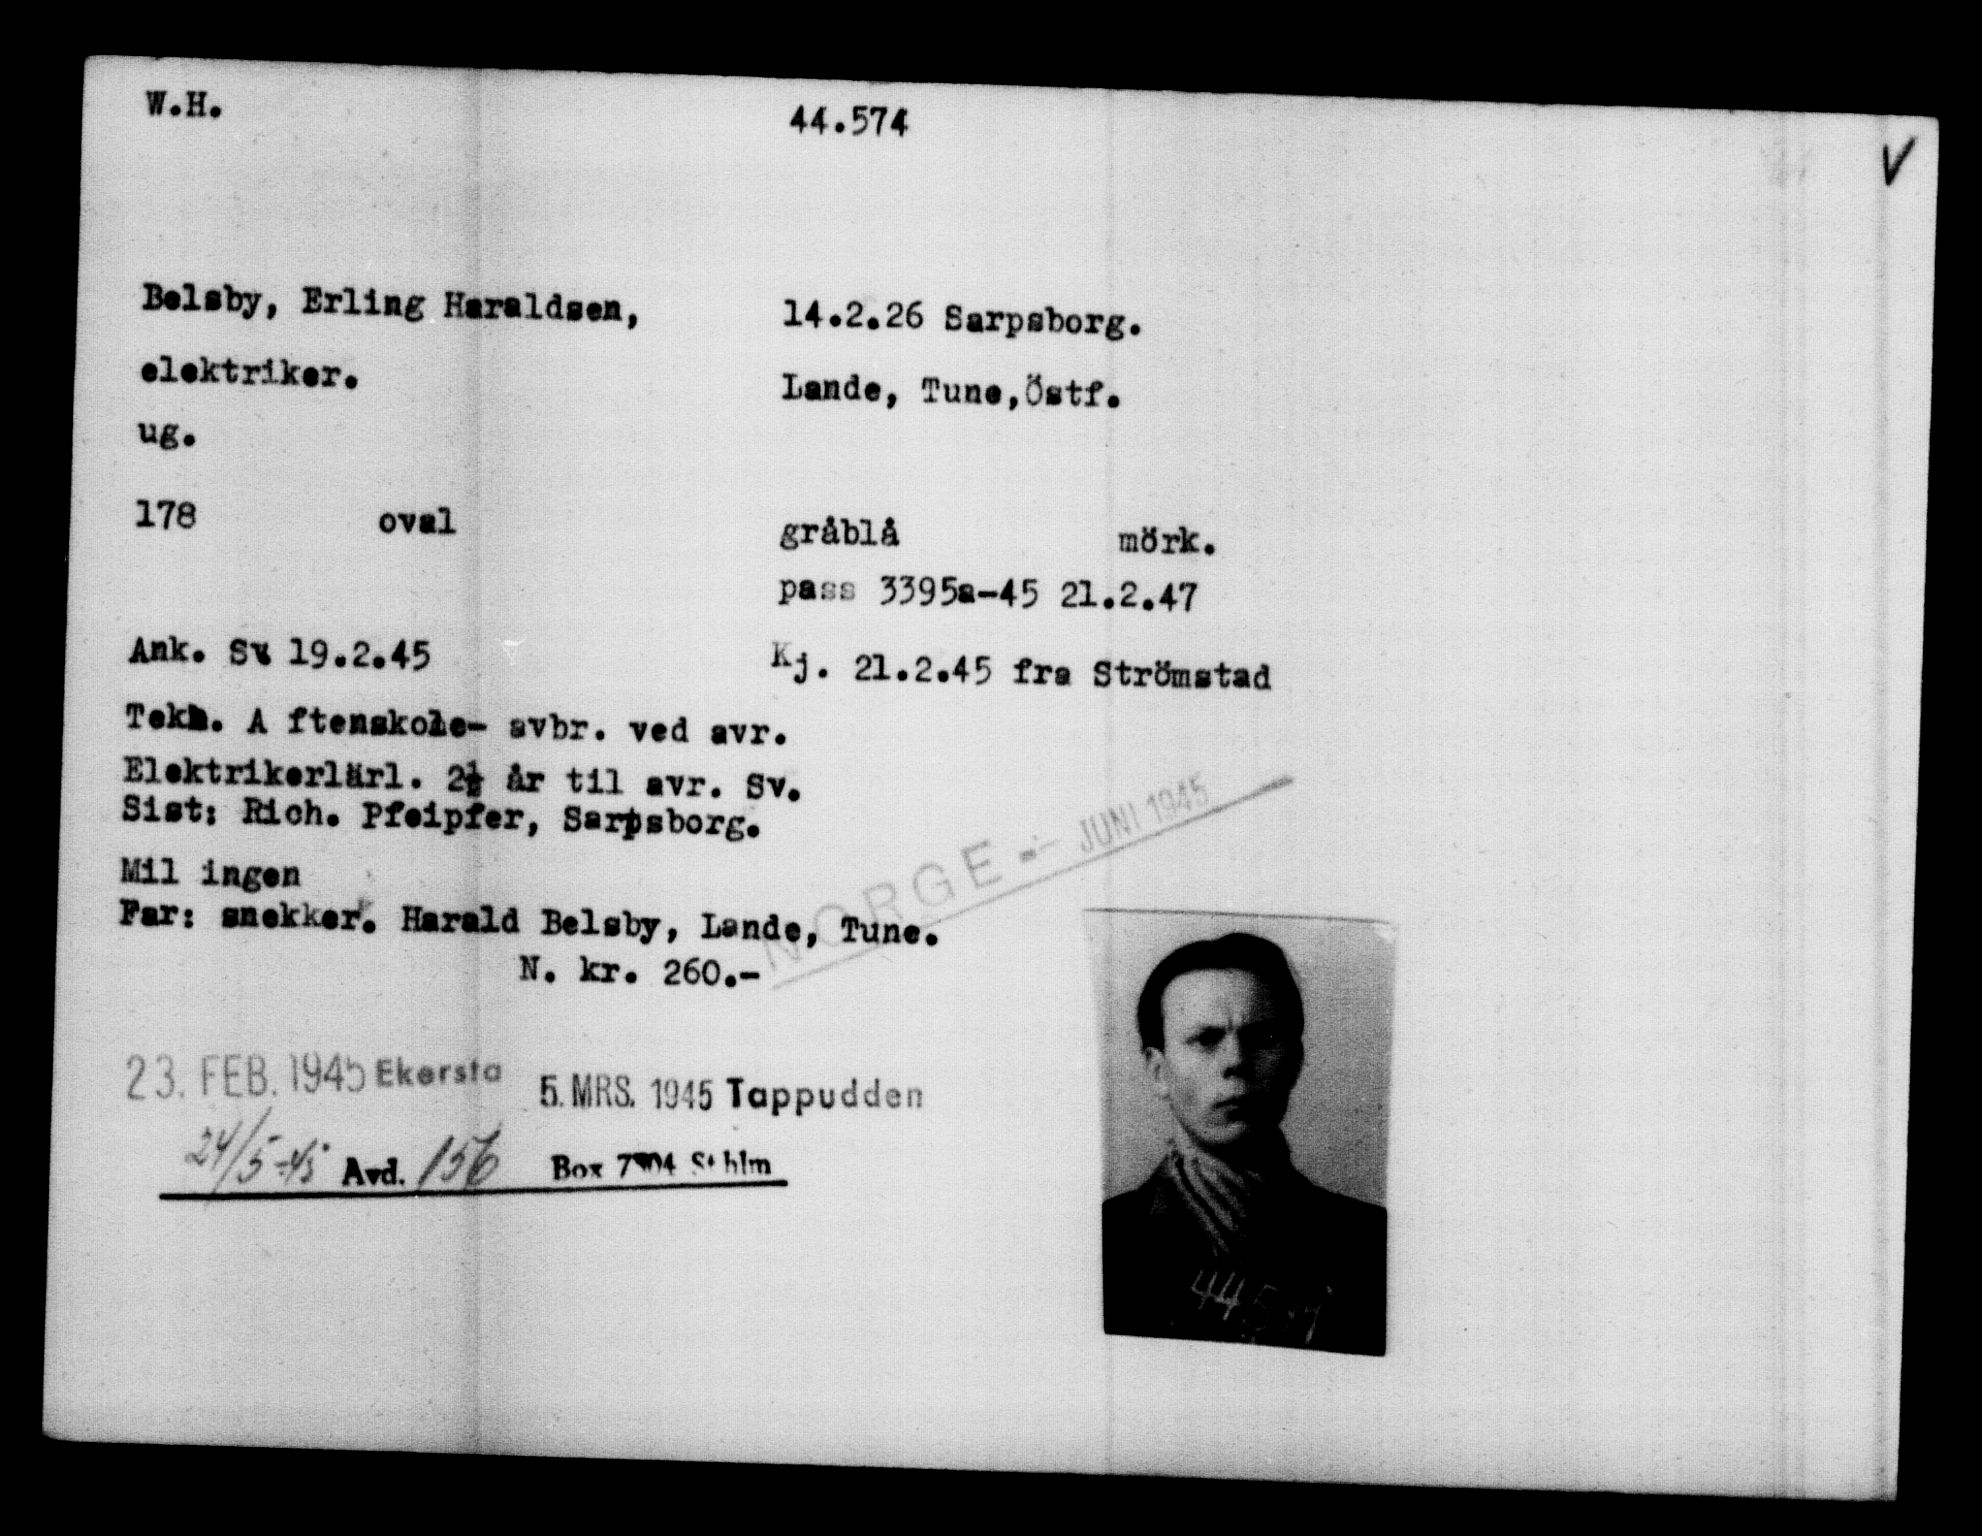 W.H. 44.574
V
Belsby, Erling Haraldsen, 14.2.26 Sarpsborg.
elektriker. Lande, Tune,Östf.
ug.
178 oval gråblå mörk.
pass 3395a-45 21.2.47
Ank. Sv 19.2.45 Kj. 21.2.45 fra Strömstad
Tekn. A ftenskole- avbr. ved avr.
Elektrikerlärl. 2½ år til avr. Sv.
Sist: Rich. Pfeipfer, Sarpsborg.
NORGE - JUNI 1945
Mil ingen
Far: snekker. Harald Belsby, Lande, Tune.
N. kr. 260.-
23. FEB. 1945 Ekersta 5. MRS. 1945 Tappudden
24/5-45 Avd. 156 Box 7904 Sthlm
44574